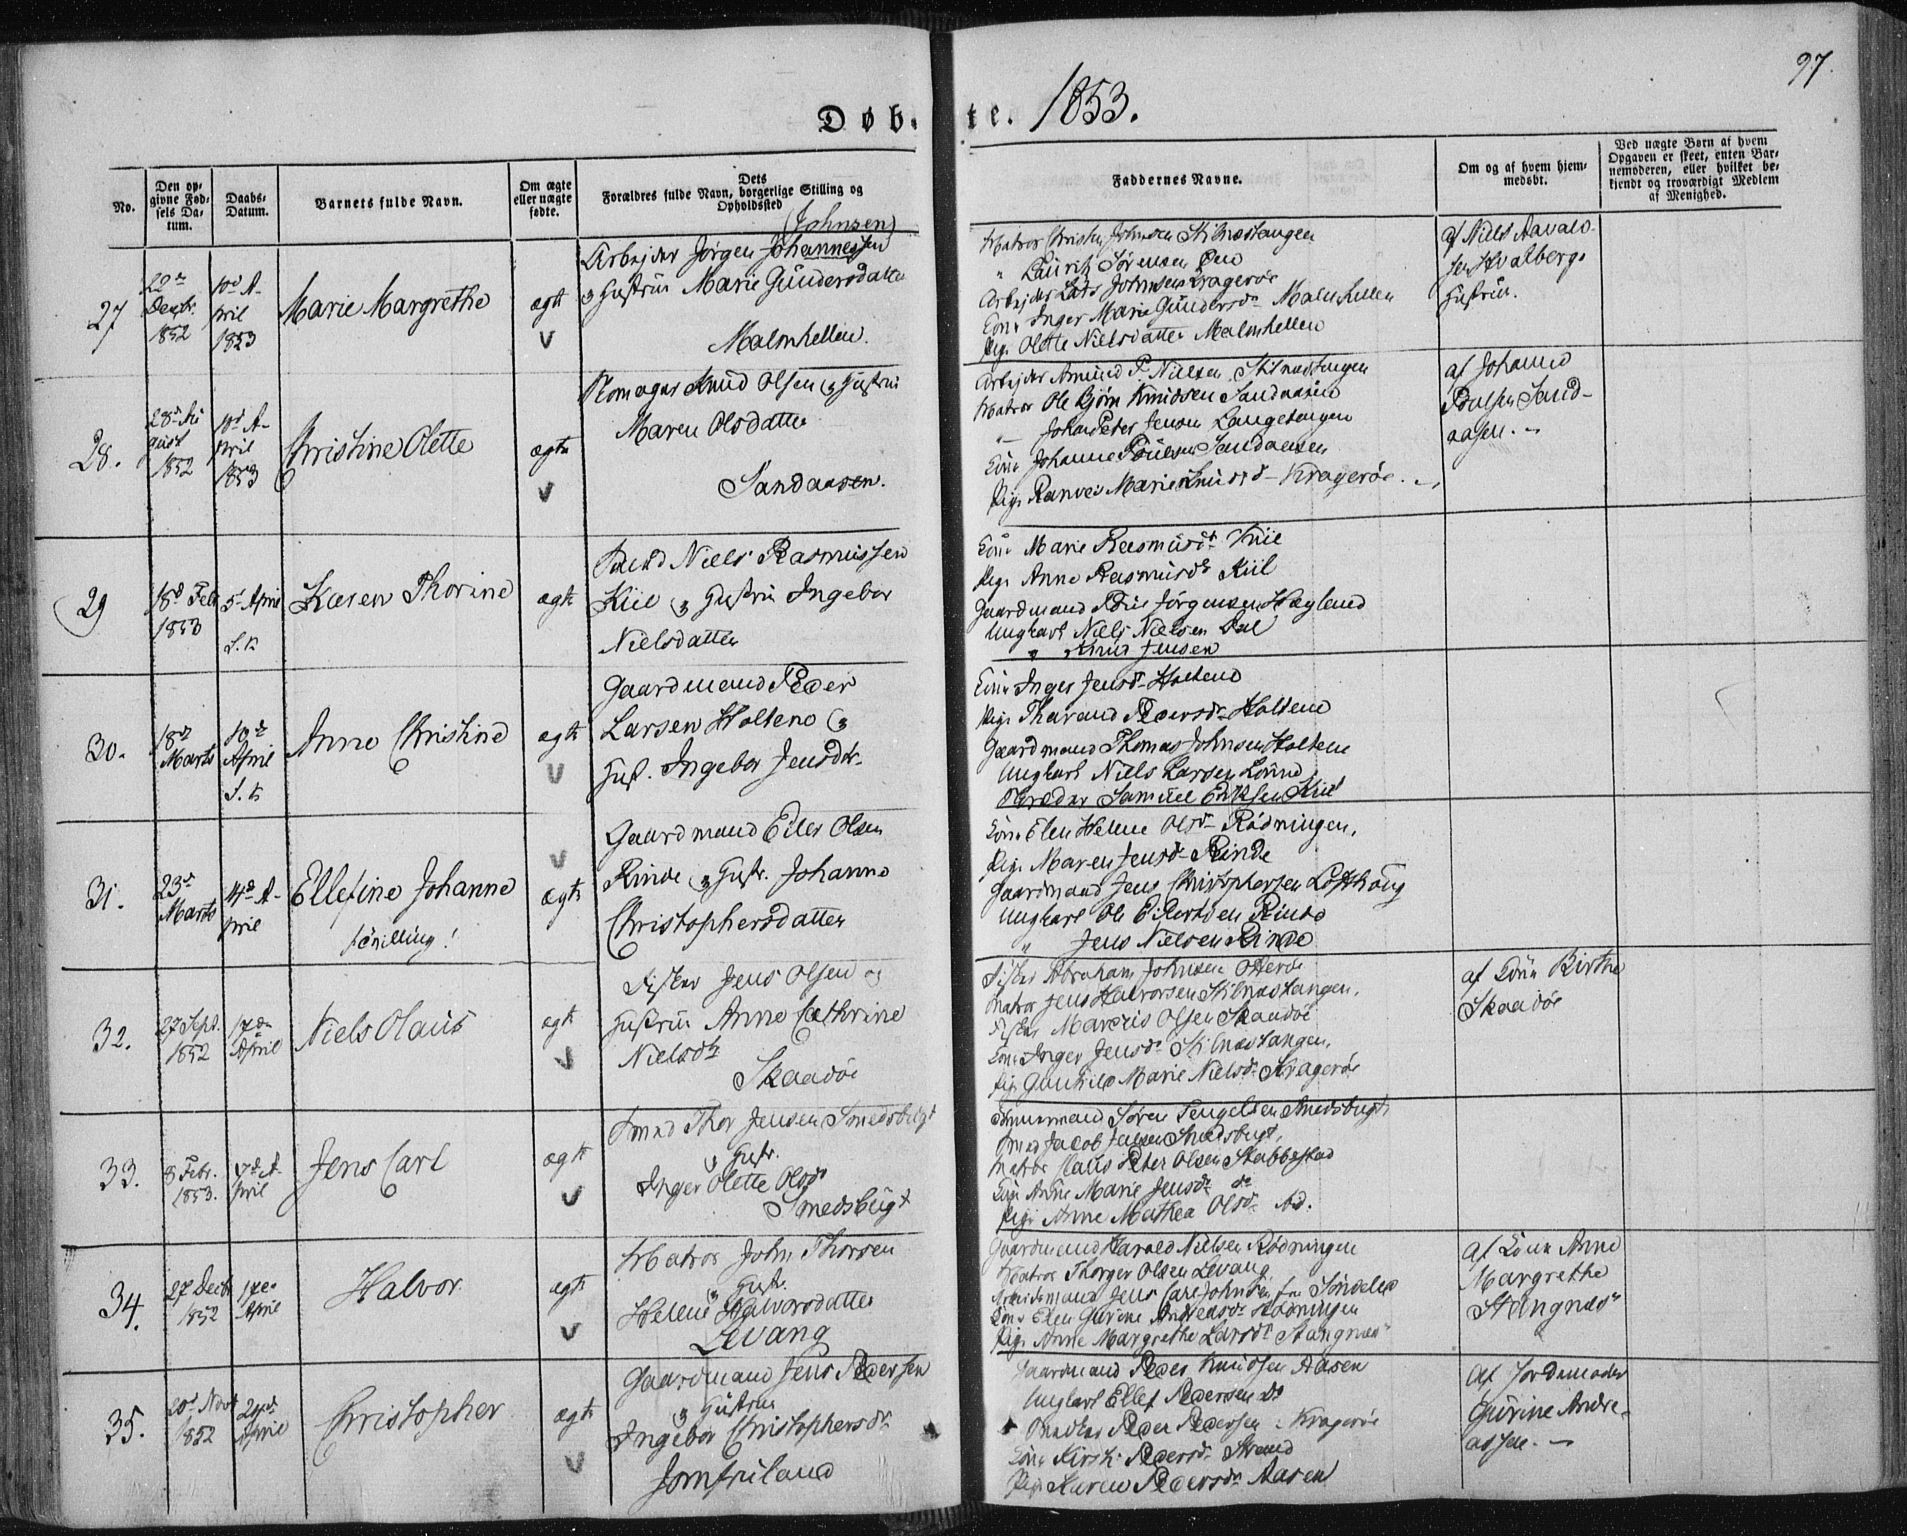 97.
Døb-
te. 1853.
No.
Den op-
givne Fød-
sels Da-
tum.
Daabs-
Datum.
Barnets fulde Navn.
Om ægte
eller uægte
fødte.
Dets
Forældres fulde Navn, borgerlige Stilling og
Opholdssted
Faddernes Navne.
Om og af hvem hjem-
medøbt.
Ved uægte Børn af hvem
Opgaven er skeet, enten Bar-
nemoderen, eller hvilket be-
kjendt og troværdigt Medlem
af Menighed.
27
1852
10d A-
pril
1853
Marie Margrethe
ægte
V
(Johnsen)
Arbejder Jørgen Johannessen
og Hustrue Marie Gundersdatter
Malmhellen.
Matros Christen Johnsen Stilnestangen
" Lauritz Sørensen
Arbejder Lars Johnsen Kragerøe
Kone Inger Marie Gundersdr Malmhellen
Pige Olette Nielsdatter Malmhellen
af Niels
Hustrue.
28.
28d Au
gust
1852
10d A-
pril
1853
Christine Olette
ægte
V
Knud Olsen og Hustrue
Maren Olsdatter
Sandaasen.
Arbejder Amund P. Nielsen Stilnestangen
Matros Ole Bjørn Knudsen Sandaasen
"- Johan Peder Jensen Langetangen
Kone Johanne Poulsen Sandaasen
Pige Ranvei Marie Knudsd- Kragerøe.
af Johanne
Poulsen Sand-
aasen. -
29
18d Feb
1853
5- April
S. K
Karen Thorine
ægte
Niels Rasmussen
Kiil og Hustrue Ingebor
Nielsdatter
Kone Marie Rasmusdr Kiil
Pige Anne Rasmusdr Kiil
Gaardmand Jørgensen
Ungkarl Niels Nielsen Dal
" Knud Jensen
30.
18d
Marts
10d
April
S. K
Anne Christine
ægte
V
Gaardmand Peder
Larsen Holtene og
Hust. Ingebor Jensdtr.
Kone Inger Jensdr Holtene
Pige Tharand Pedersdr Holtene
Gaardmand Thomas Johnsen Holtene
Ungkarl Niels Larsen
Samuel Eriksen Kiil
31.
23d
Marts
14d A-
pril
Ellefine Johanne
tvilling!
V
ægte
Gaardmand Eiler Olsen
Rinde og Hustr. Johanne
Christophersdatter
Kone Elen Helene Olsd- Rødningen.
Pige Maren Jensd- Rinde
Gaardmand Jens Christophersen Lofthoug
Ungkarl Ole Eilertsen Rinde
" Jens Nielsen Rinde
32.
27 Sept.
1852
17de
April
Niels Olaus
ægte
V
Fisker Jens Olsen og
Hustrue Anne Cathrine
Nielsdtr
Skaadøe
Fisker Abraham Johnsen Oterøe
Matros Jens Halvorsen Stilnestangen,
Fisker Marcus Olsen Skaadøe
Kone Inger Jensdr Stilnestangen,
Pige Gunhild Marie Nielsd- Kragerøe
af Kone Birthe
Skaadøe
33.
8 Febr.
1853.
17de A-
pril
Jens Carl
ægte
V
Smed Thor Jensen Smedsbugt
og Hustr.
Inger Olette Olsdr
Smedsbugt
Tømmermand Søren Tengelsen Smedsbugt
Smed Jacob Jensen Smedsbugt,
Matros Claus Peter Olsen Stabbestad
Kone Anne Marie Jensdr do
Pige Anne Mathea Olsdr
34.
27 Decbr
1852
17de
April
Halvor
ægte
V
Matros John Thorsen
og Hustr.
Helene Halvorsdatter
Levang
Gaardmand Harald Nielsen Rødningen
Matros Thorger Olsen Levang
Arbeidsmand Jens Carl Johnsen fra Søndeled
Kone Elen Gurine Andreasdr Rødningen
Pige Anne Margrethe Larsdr Stangnæs
Af Kone Anne
Margrethe
Stangnæs
35.
20d Novb
1852
24de
April
Christopher
ægte
V
Gaardmand Jens Pedersen
og Hustrue
Ingebor Christophersdr
Jomfruland
Gaardmand Peder Knudsen Aasen
Ungkarl Ellef Pedersen do
Peder Pedersen i Kragerøe
Kone Kirsti Pedersdr Strand
Pige Karen Pedersdr Aasen
Af Jordemoder
Gurine Andre-
assen. -